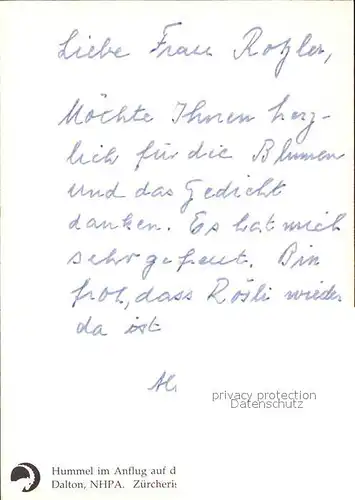 Liebe Frau Rotzler,
Möchte Ihnen herz-
lich für die Blumen
und das Gedicht
danken. Es hat mich
sehr gefreut. Bin
froh, dass Rösli wieder
da ist
privacy protection
Datenschutz
Hummel im Anflug auf d
Dalton, NHPA. Zürcheris